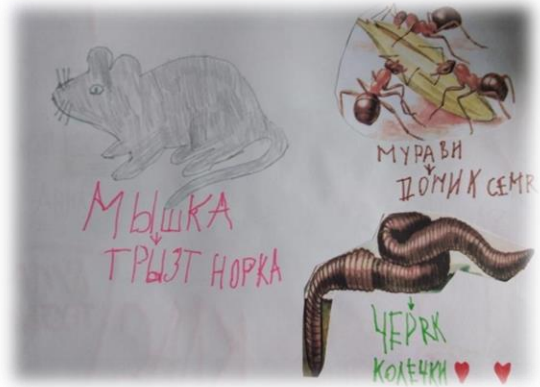 МЫШКА
ТРЫЗТ НОРКА
МУРАВИ
ДОМИК СЕМЯ
ЧЕРВЯК
КОЛЕЧКИ